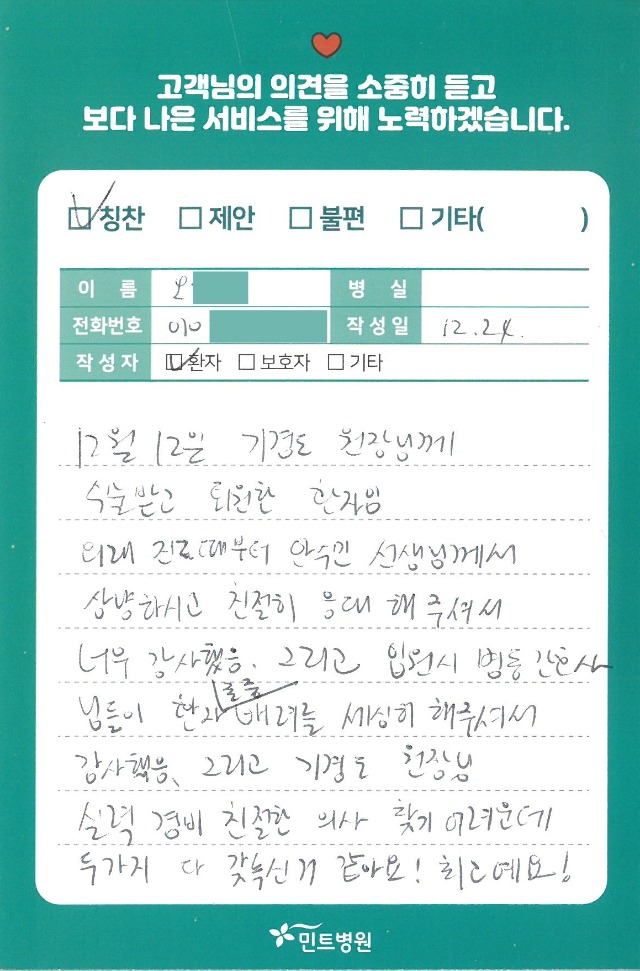 고객님의 의견을 소중히 듣고
보다 나은 서비스를 위해 노력하겠습니다.
칭찬 제안 불편 기타( )
이 름 오 병 실
전화번호 010 작성일 12.24.
작성자 환자 보호자 기타
12월 12일 기경도 원장님께
수술받고 퇴원한 환자임
외래 진료때부터 안수민 선생님께서
상냥하시고 친절히 응대 해 주셔서
너무 감사했음. 그리고 입원시 병동 간호사
님들이 환자들을 배려를 세심히 해주셔서
감사했음. 그리고 기경도 원장님
실력 겸비 친절한 의사 찾기 어려운데
두가지 다 갖춘신거 같아요! 최고예요!
민트병원